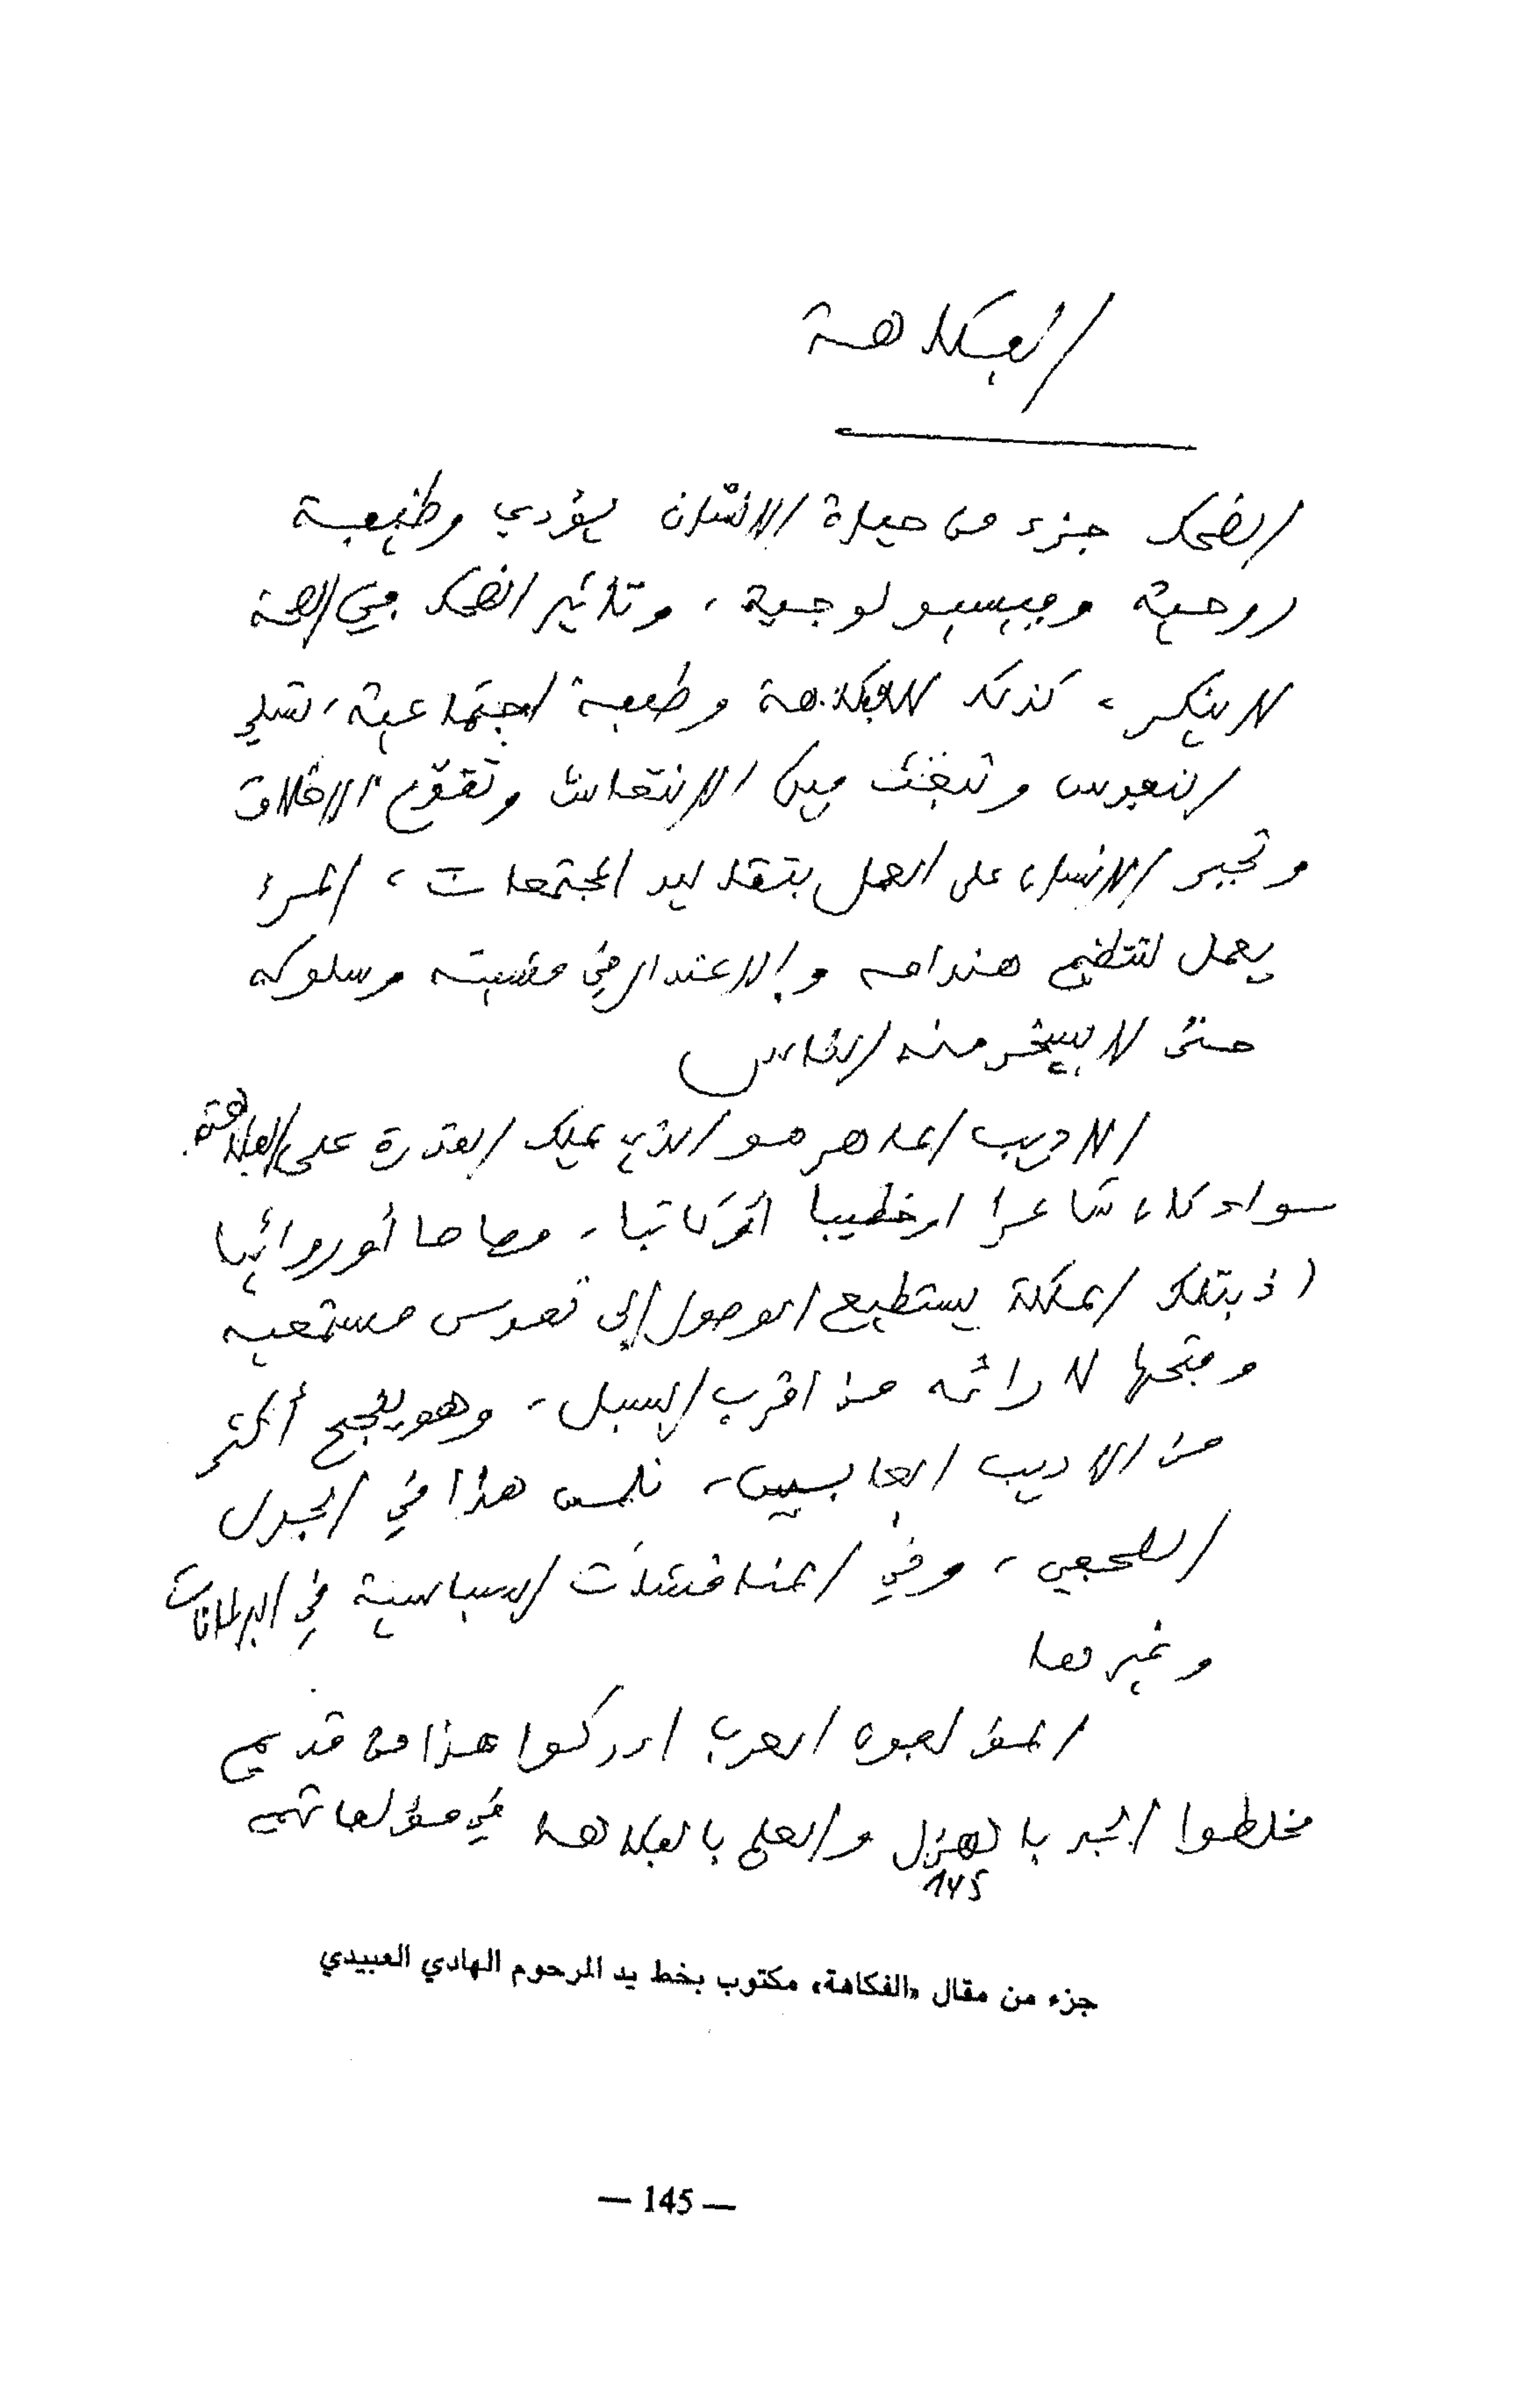 الفكاهة
الضحك جزء من حياة الانسان يؤدي وظيفة
روحية وفيسيولوجية، وتاثير الضحك في الصحة
لا ينكر، كذلك للفكاهة وظيفة اجتماعية، تسلي
النفوس وتبعث فيها الانتعاش وتقوّم الاخلاق
وتجبر الانسان على العمل بتقاليد المجتمعات، المرء
يعمل لتنظيم هندامه والاعتدال في مشيته وسلوكه
حتى لا يسخر منه الناس
الاديب الماهر هو الذي يملك القدرة على الفكاهة
سواء كان شاعرا او خطيبا أو كاتبا، قصاصا أو روائيا
اذ بتلك الملكة يستطيع الوصول إلى نفوس مستمعيه
وفتحها لآرائه من اقرب السبل، وهو ينجح أكثر
من الاديب العابس، نلمس هذا في الجدل
الصحفي، وفي المناقشات السياسية في البرلمانات
وغيرها
المؤلفون العرب ادركوا هذا من قديم
فخلطوا الجد بالهزل والعلم بالفكاهة في مؤلفاتهم
145
جزء من مقال «الفكاهة» مكتوب بخط يد المرحوم الهادي العبيدي
— 145 —